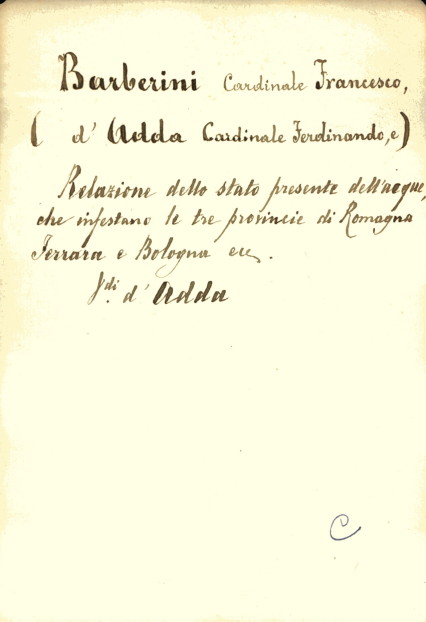 Barberini Cardinale Francesco,
( d' Adda Cardinale Ferdinando, e)
Relazione dello stato presente dell'acque,
che infestano le tre provincie di Romagna
Ferrara e Bologna ecc.
Vdi. d' Adda
C